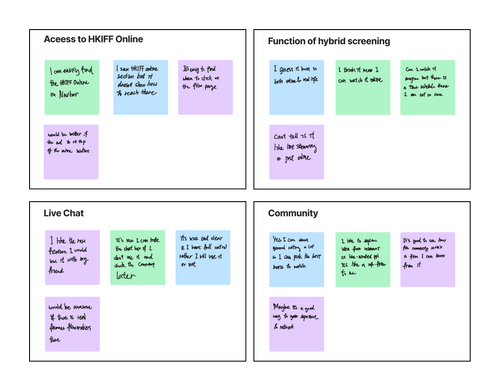 Access to HKIFF Online
I can easily find
the HKIFF Online
on Navbar
I saw HKIFF online
section but it
doesnt show how
to reach there
It's easy to find
where to click on
the film page
would be better if
the ad is on top
of the online section
Function of hybrid screening
I guess it have in
both online & real life
I think it mean I
can watch it online
Can I watch it
anytime but there is
a time schedule there
I am not so sure
Can't tell is it
like live streaming
or just online
Live Chat
I like the new
feature I would
use it with my
friend
It's nice I can hide
the chat box if I
don't use it and
check the comment
later
It's nice and clear
I have full control
rather I will use it
or not
would be awesome
if there is real
famous filmmakers
there
Community
Yes I can some
general rating a lot
so I can pick the best
movie to watch
I like to explore
idea from
or like-minded ppl
It's like a
to me
It's good to see how
film community
a film I can learn
from it
Maybe it's a good
way to meet someone
& network